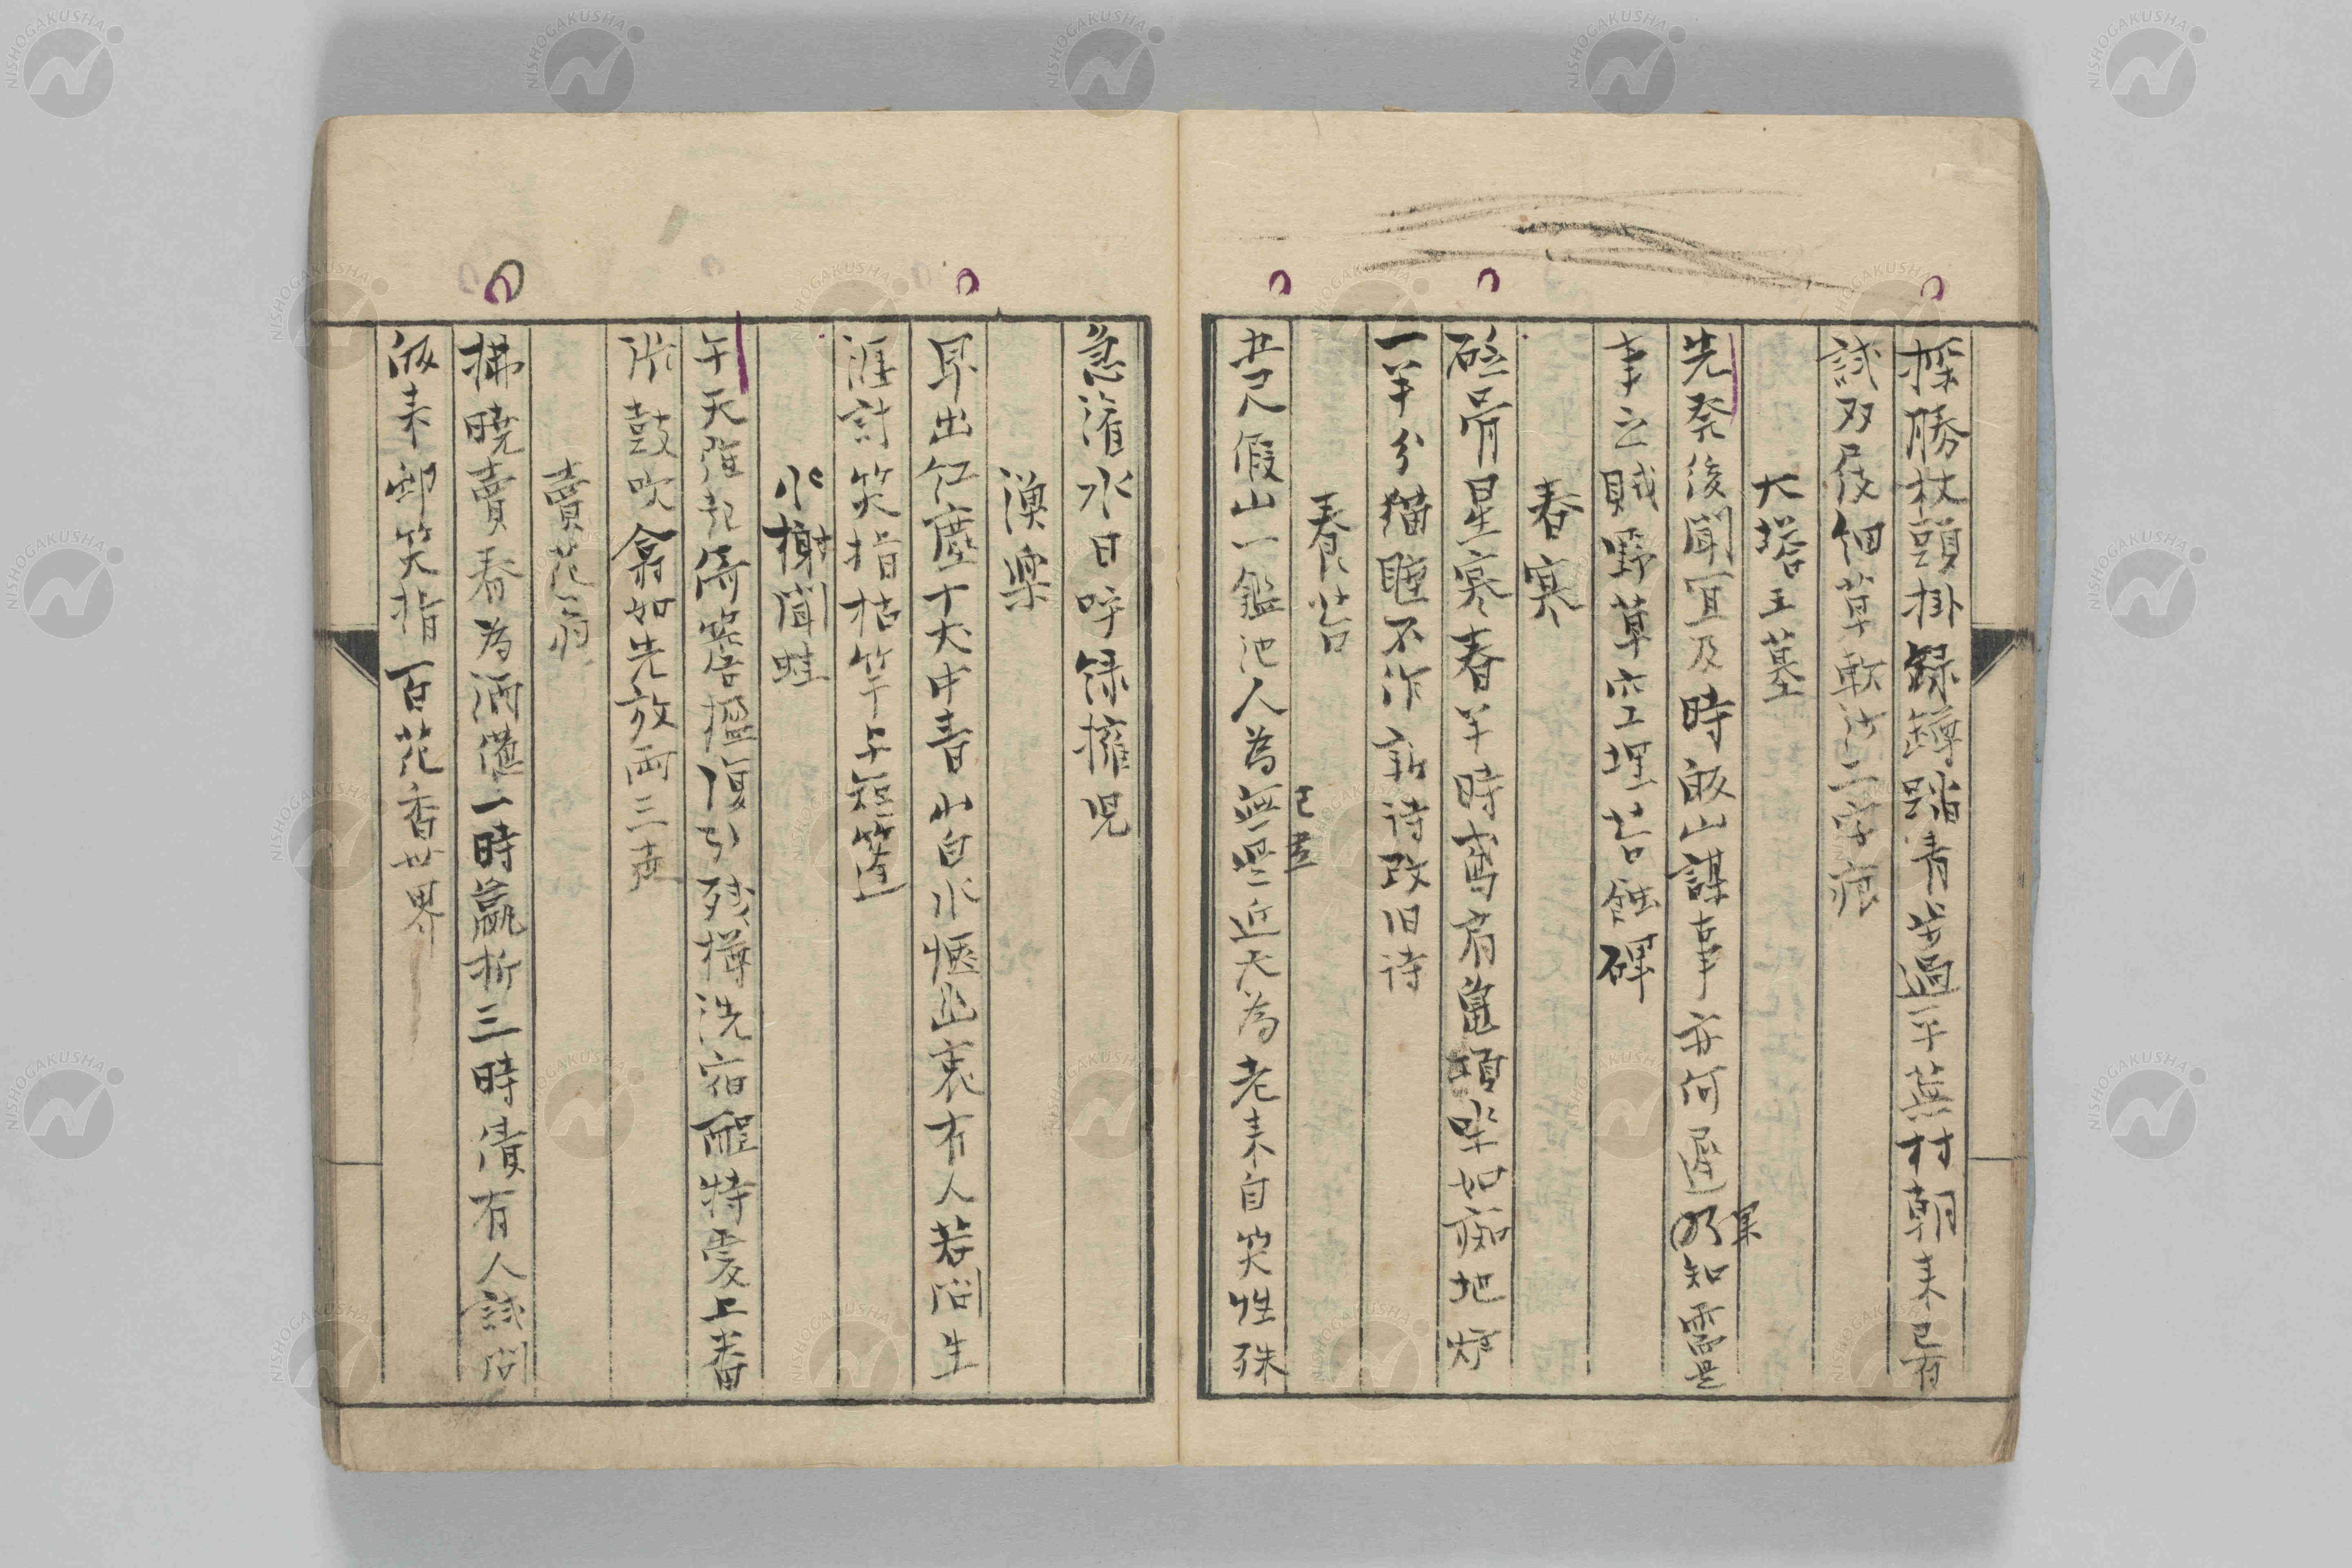 探勝杖頭掛緑罇踏青歩過平蕪村朝来已有
試双屐細草軟沙二歯痕
大塔王墓
先発後聞宜及時敵山謀事亦何遅果知霊是
事之賊野草空埋苔蝕碑
春寒
砭骨星寒春半時鳶肩亀頭坐如痴地炉
一半分猫睡不作新詩改旧詩
養苔
共尺假山一鑑池人為無学近天為老来自笑性殊
急潅水日呼緑擁児
漁楽
早出紅塵十丈中青山白水愜幽衷有人若問生
涯計笑指枯竿与短篷
水榭聞蛙
午天強起倚 楹復引残樽洗宿酲特愛上番
水鼓吹翕如先放両三声
賣花翁
拂暁賣春為酒僊一時贏折三時債有人試問
販来却笑指百花香世界